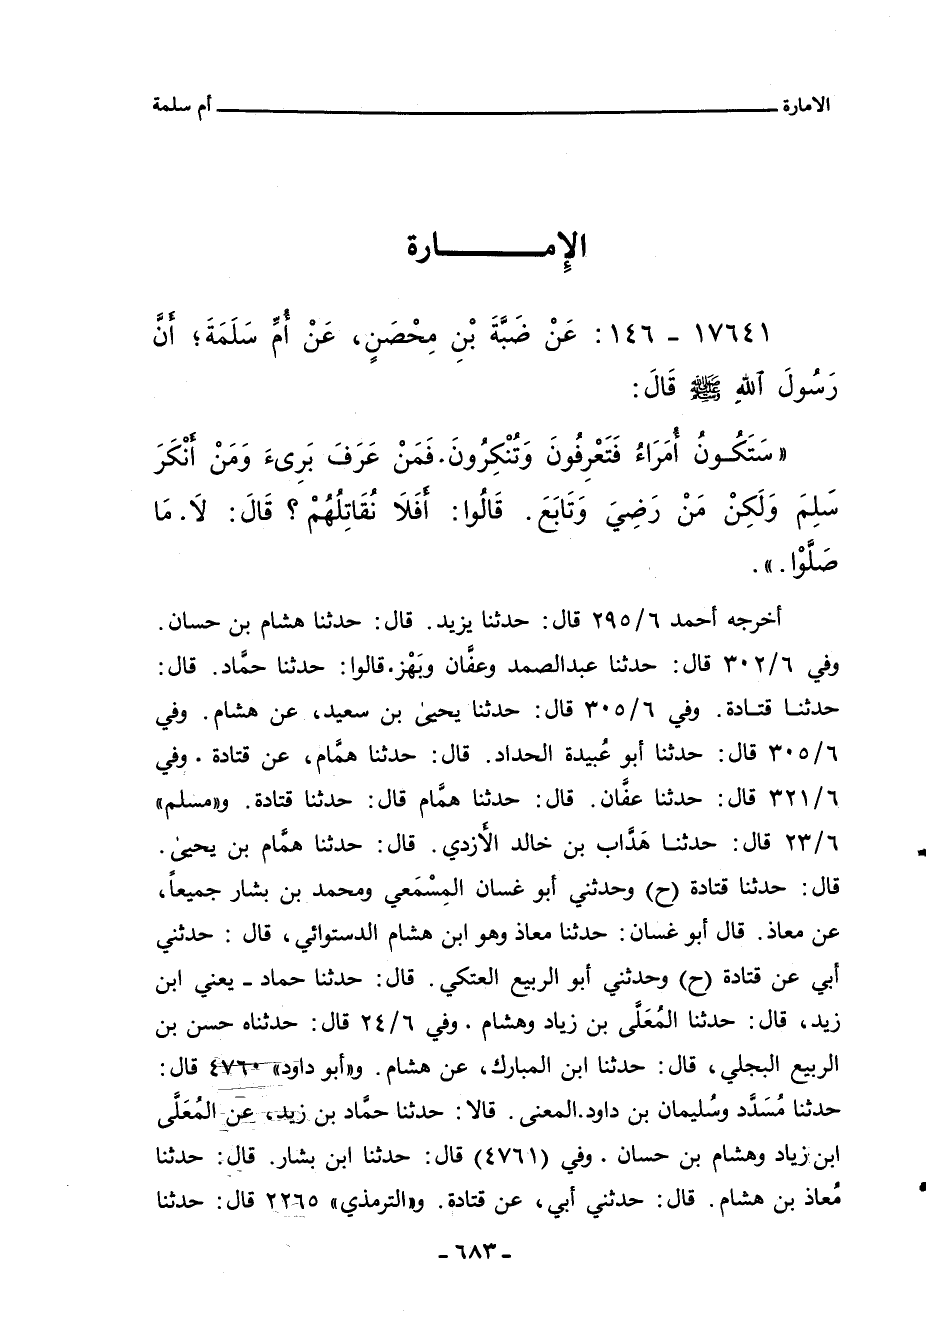 الامارة ــــــــ أم سلمة
الإمـــــــارة
١٧٦٤١ ـ ١٤٦: عَنْ ضَبَّةَ بْنِ مِحْصَنٍ، عَنْ أُمِّ سَلَمَةَ؛ أَنَّ
رَسُولَ ٱللهِ ﷺ قَالَ:
«سَتَكُـونُ أُمَرَاءُ فَتَعْرِفُونَ وَتُنْكِرُونَ. فَمَنْ عَرَفَ بَرِىءَ وَمَنْ أَنْكَرَ
سَلِمَ وَلَكِنْ مَنْ رَضِيَ وَتَابَعَ. قَالُوا: أَفَلَا نُقَاتِلُهُمْ؟ قَالَ: لَا. مَا
صَلَّوْا.».
أخرجه أحمد ٢٩٥/٦ قال: حدثنا يزيد. قال: حدثنا هشام بن حسان.
وفي ٣٠٢/٦ قال: حدثنا عبدالصمد وعفَّان وبَهْز. قالوا: حدثنا حمَّاد. قال:
حدثنـا قتـادة. وفي ٣٠٥/٦ قال: حدثنا يحيىٰ بن سعيد، عن هشام. وفي
٣٠٥/٦ قال: حدثنا أبو عُبيدة الحداد. قال: حدثنا همَّام، عن قتادة. وفي
٣٢١/٦ قال: حدثنا عفَّان. قال: حدثنا همَّام قال: حدثنا قتادة. و«مسلم»
٢٣/٦ قال: حدثنـا هَدَّاب بن خالد الأَزدي. قال: حدثنا همَّام بن يحيىٰ.
قال: حدثنا قتادة (ح) وحدثني أبو غسان المِسْمَعي ومحمد بن بشار جميعاً،
عن معاذ. قال أبو غسان: حدثنا معاذ وهو ابن هشام الدستوائي، قال: حدثني
أبي عن قتادة (ح) وحدثني أبو الربيع العتكي. قال: حدثنا حماد ـ يعني ابن
زيد، قال: حدثنا المُعَلَّى بن زياد وهشام. وفي ٢٤/٦ قال: حدثناه حسن بن
الربيع البجلي، قال: حدثنا ابن المبارك، عن هشام. و«أبو داود» ٤٧٦٠ قال:
حدثنا مُسَدَّد وسُليمان بن داود. المعنى. قالا: حدثنا حمَّاد بن زيد، عن المُعَلَّى
ابن زياد وهشام بن حسان. وفي (٤٧٦١) قال: حدثنا ابن بشار. قال: حدثنا
مُعاذ بن هشام. قال: حدثني أبي، عن قتادة. و«الترمذي» ٢٢٦٥ قال: حدثنا
ـ ٦٨٣ ـ